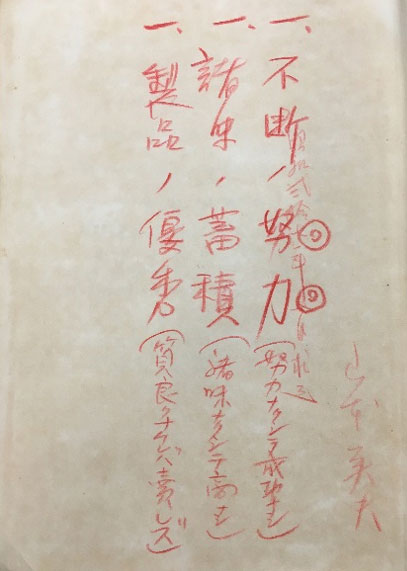 山本
一、不断ノ努力(努力ナクシテ成功ナシ)
一、諸味ノ蓄積(諸味ナクシテ商ナシ)
一、製品ノ優秀(質良クナケレバ賣レズ)